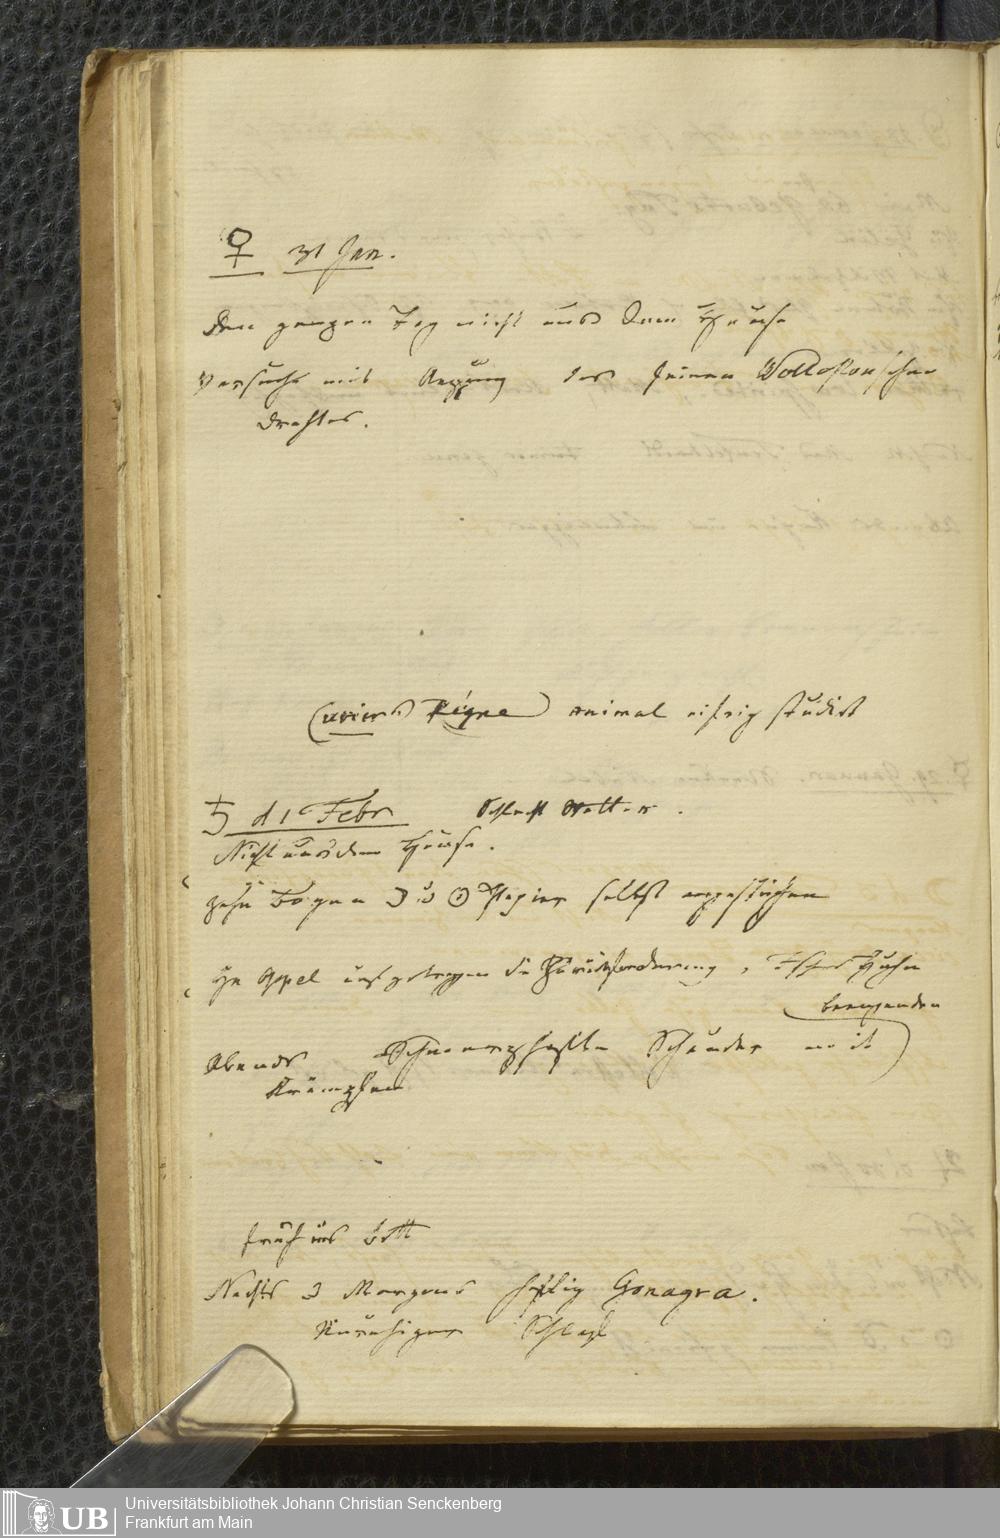 ♀ 31 Jan.
Den ganzen Tag nicht aus dem Hause
Versuche mit des feinen Wollastonschen
Drahtes.
Cuviers Régne animal eifrig studirt
♄ d 1 Febr Schlecht Wetter.
Nicht aus dem Hause.
Zehn Bogen ☽ u ☉ Papier selbst angestrichen
Hr Appel
Abends Schmerzhafte mit
brennenden
Krämpfen
früh ins Bett
Nachts 3 Morgens heftig Gonagra.
Unruhiger Schlaf
Universitätsbibliothek Johann Christian Senckenberg
Frankfurt am Main
UB